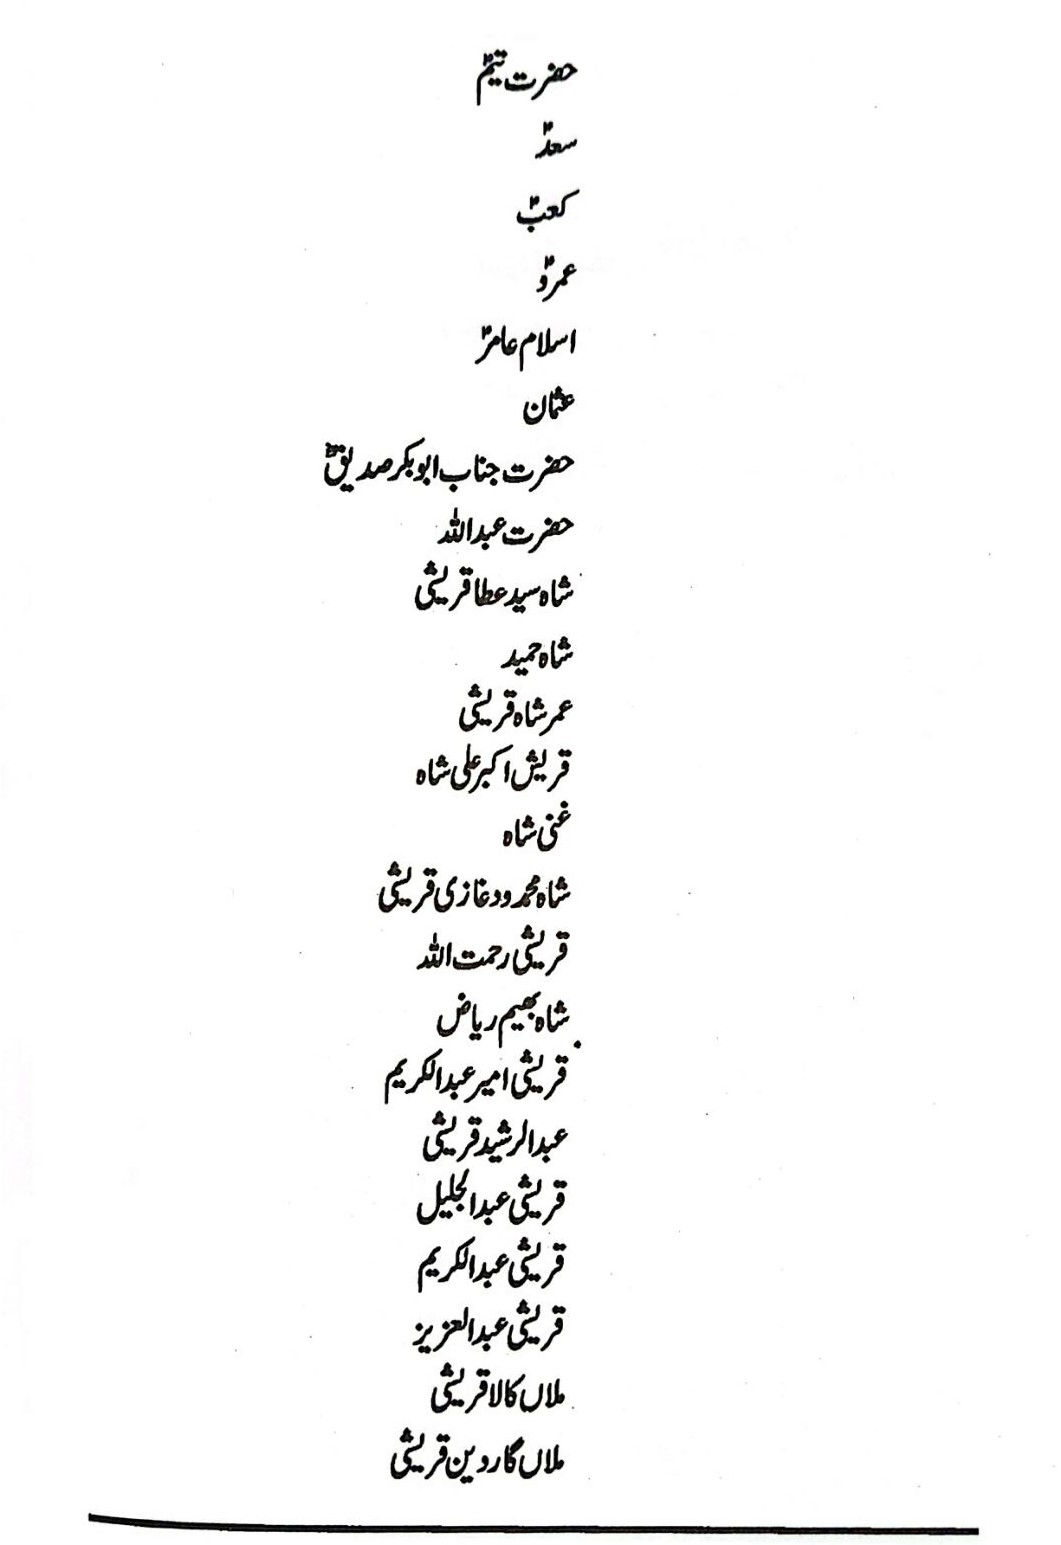 حضرت تیمؑ
سعدؑ
کعبؑ
عمروؑ
اسلام عامرؑ
عثمان
حضرت جناب ابوبکر صدیقؓ
حضرت عبداللہ
شاہ سید عطا قریشی
شاہ حمید
عمر شاہ قریشی
قریش اکبر علی شاہ
غنی شاہ
شاہ محمدود غازی قریشی
قریشی رحمت اللہ
شاہ بھیم ریاض
قریشی امیر عبدالکریم
عبدالرشید قریشی
قریشی عبدالجلیل
قریشی عبدالکریم
قریشی عبدالعزیز
ملاں کالا قریشی
ملاں گاردین قریشی